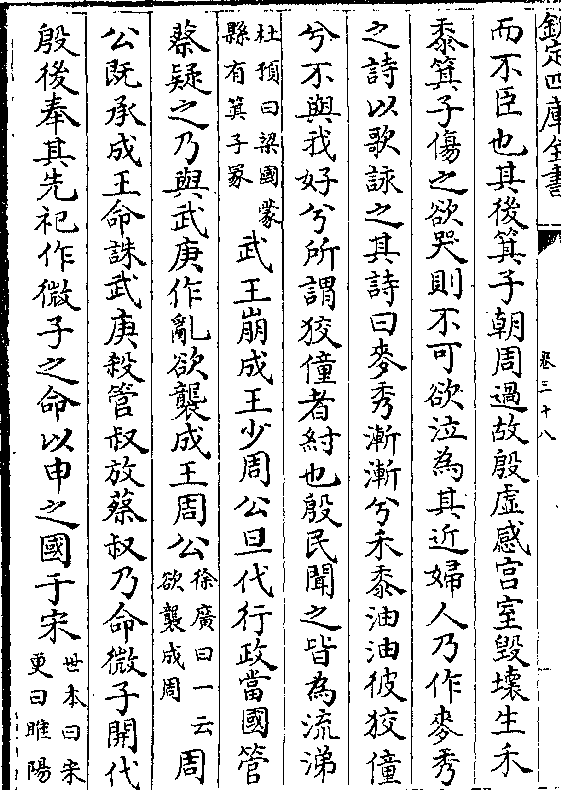 欽定四庫全書
卷三十八
而不臣也其後箕子朝周過故殷虛感宫室毀壞生禾
黍箕子傷之欲哭則不可欲泣為其近婦人乃作麥秀
之詩以歌詠之其詩曰麥秀漸漸兮禾黍油油彼狡僮
兮不與我好兮所謂狡僮者紂也殷民聞之皆為流涕
杜預曰梁國蒙
縣有箕子冢
武王崩成王少周公旦代行政當國管
蔡疑之乃與武庚作亂欲襲成王周公
徐廣曰一云
欲襲成周
周
公既承成王命誅武庚殺管叔放蔡叔乃命微子開代
殷後奉其先祀作微子之命以申之國于宋
世本曰宋
更曰睢陽